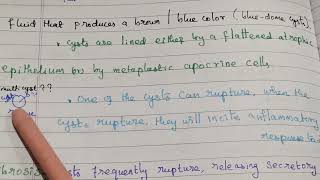 fluid that produces a brown / blue color (blue-dome cysts).
• cysts are lined either by a flattened atrophic
epithelium or by metaplastic apocrine cells.
multi cyst??
cyst
• One of the cysts can rupture, when the
cysts rupture, they will incite inflammatory
response to
brosis
cysts frequently rupture, releasing secretory